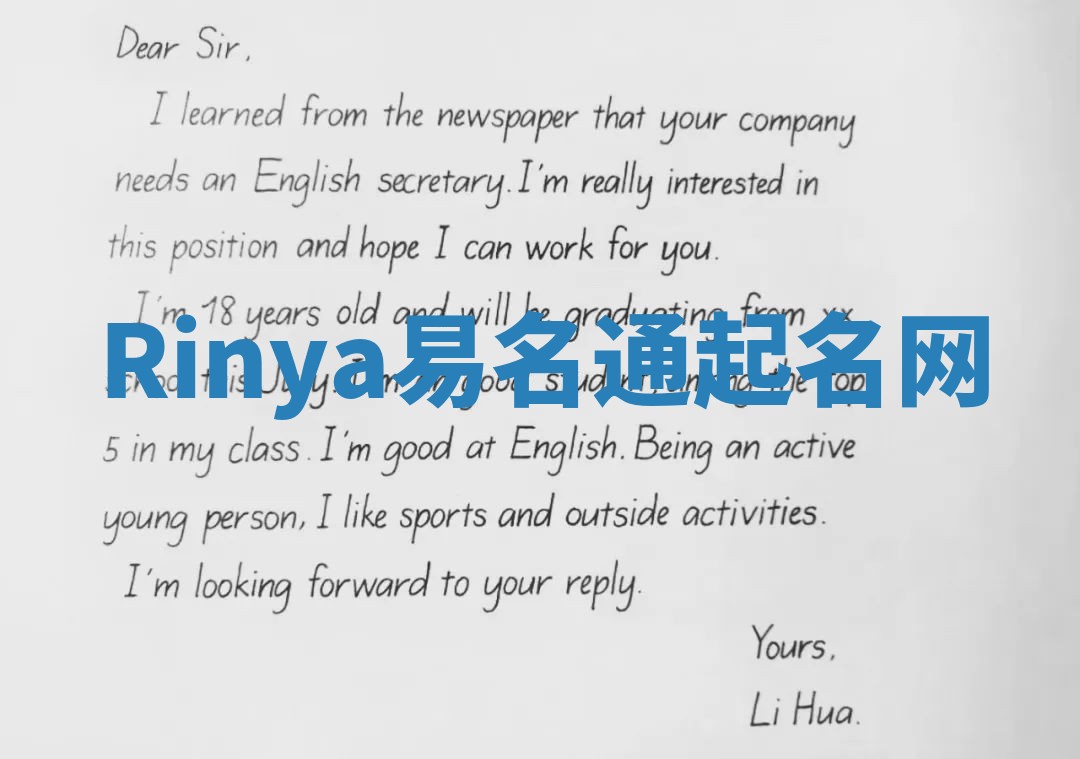 Dear Sir,
I learned from the newspaper that your company
needs an English secretary. I'm really interested in
this position and hope I can work for you.
I'm 18 years old and will be graduating from xx
Rinya易名通起名网
school this July. I'm good student, among the top
5 in my class. I'm good at English. Being an active
young person, I like sports and outside activities.
I'm looking forward to your reply.
Yours,
Li Hua.